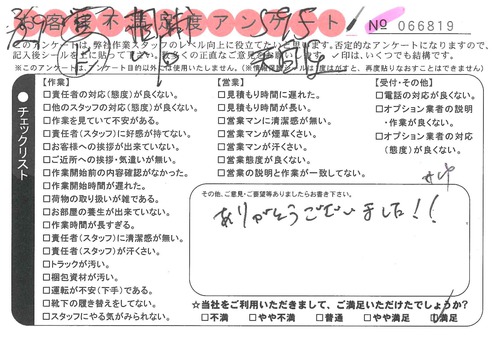 お客様不満足度アンケート
№ 066819
このアンケートは、弊社作業スタッフのレベル向上に役立てたいと思います。否定的なアンケートになりますので、
チェックリスト
【作業】
□責任者の対応(態度)が良くない。
□他のスタッフの対応(態度)が良くない。
□作業を見ていて不安がある。
□責任者(スタッフ)に好感が持てない。
□お客様への挨拶が出来ていない。
□ご近所への挨拶・気遣いが無い。
□作業開始前の内容確認がなかった。
□作業開始時間が遅れた。
□荷物の取り扱いが雑である。
□お部屋の養生が出来ていない。
□作業時間が長すぎる。
□責任者(スタッフ)に清潔感が無い。
□責任者(スタッフ)が汗くさい。
□トラックが汚い。
□梱包資材が汚い。
□運転が不安(下手)である。
□靴下の履き替えをしてない。
□スタッフにやる気がみられない。
【営業】
□見積もり時間に遅れた。
□見積もり時間が長い。
□営業マンに清潔感が無い。
□営業マンが煙草くさい。
□営業マンが汗くさい。
□営業態度が良くない。
□営業の説明と作業が一致してない。
【受付・その他】
□電話の対応が良くない。
□オプション業者の説明
・作業が良くない。
□オプション業者の対応
(態度)が良くない。
その他、ご意見・ご要望等ありましたらお書き下さい。
ありがとうございました!!
☆当社をご利用いただきまして、ご満足いただけたでしょうか?
□不満 □やや不満 □普通 □やや満足 □満足